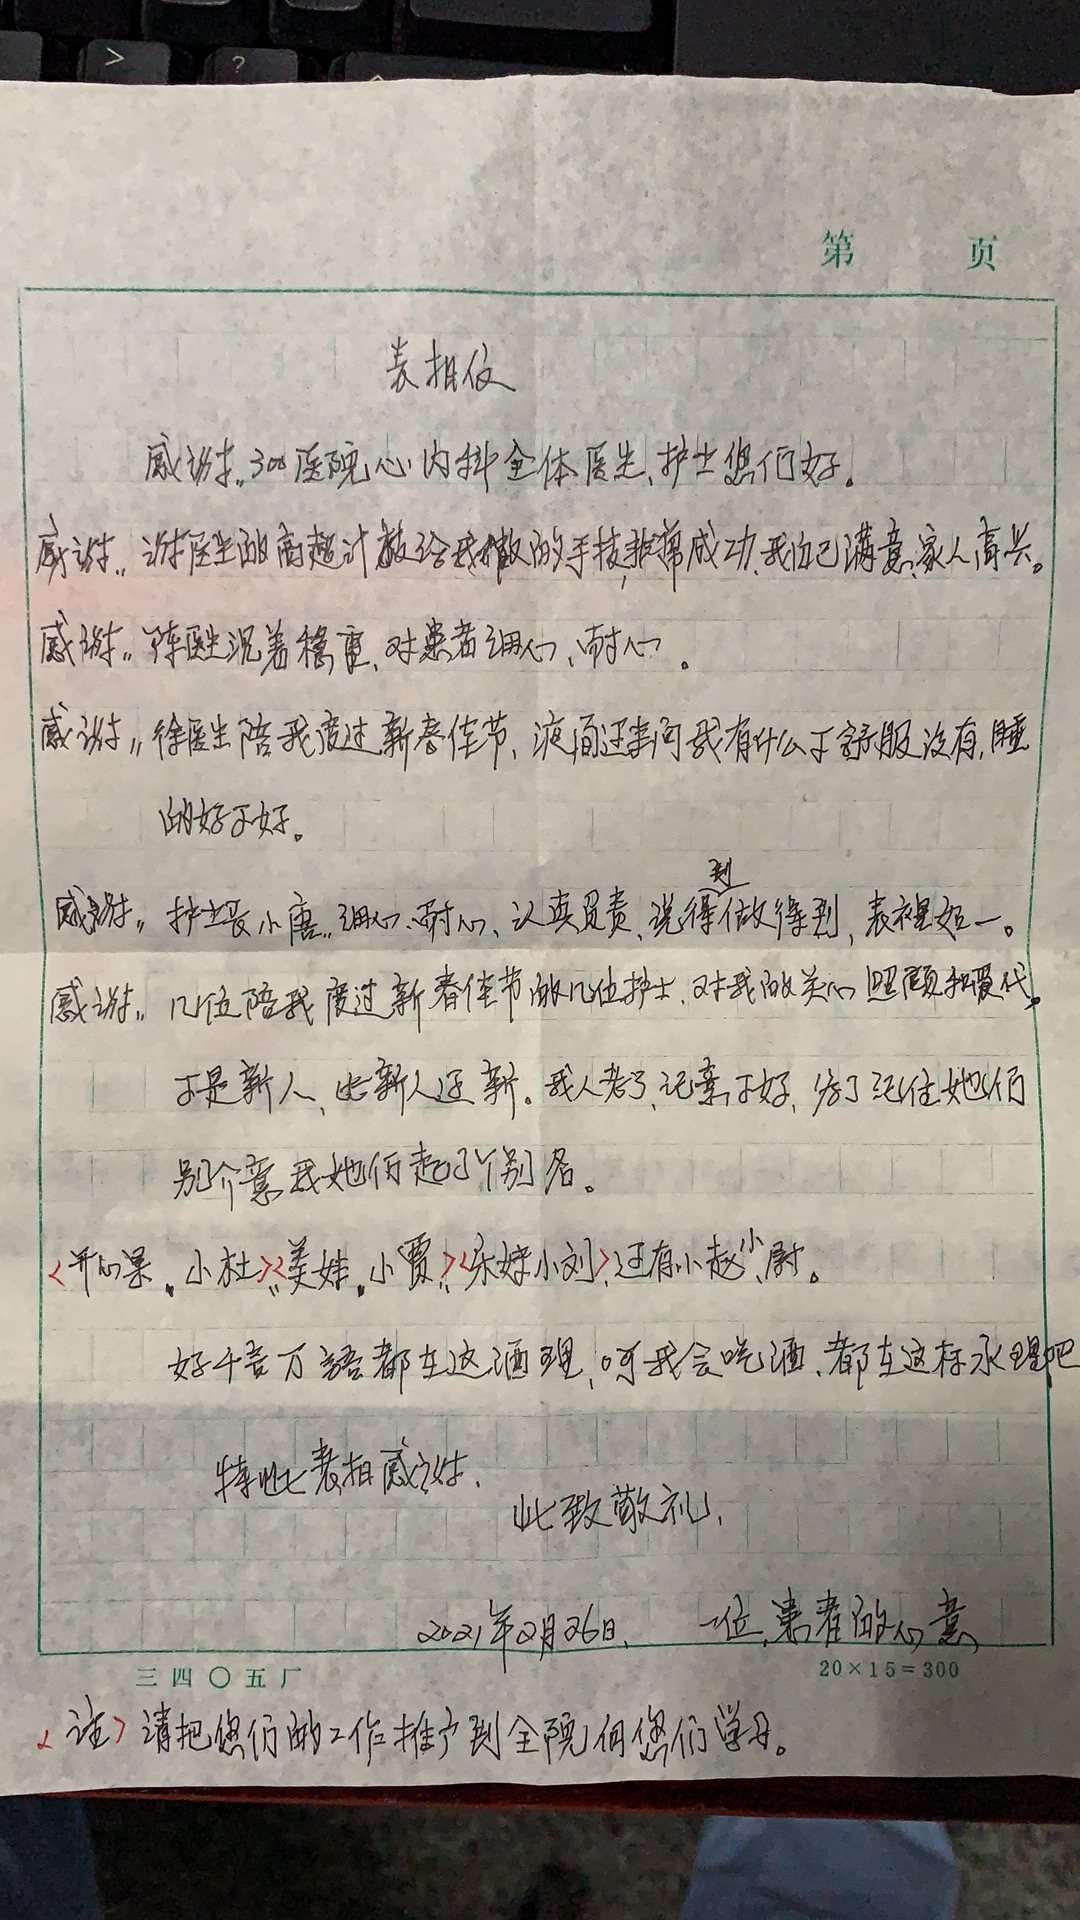 >
?
第 页
表相仪
感谢,,300医院心内科全体医生、护士您们好。
感谢,,谢医生的高超计数给我做的手技,非常成功、我自己满意、家人高兴。
感谢,,陈医生沉着稳重、对患者细心、耐心。
感谢,,徐医生陪我度过新春佳节、夜间还来问我有什么不舒服没有,睡
的好不好。
感谢,,护士长小唐,,细心、耐心、认真负责、说得到做得到、表裡如一。
感谢,,几位陪我度过新春佳节的几位护士、对我的关心照顾和爱代。
不是新人、比新人还新。我人老了、记意不好、为了记住她们
别介意我她们起了个别名。
<开心果。小杜><“美妹。小贾”><乐妹小刘>,还有小赵、小尉。
好千言万語都在这酒理,可我会吃酒、都在这杯水理吧
特此表相感谢.
此致敬礼,
2021年2月26日、 一位患者的心意
三四〇五厂 20×15=300
<注>请把您们的工作推广到全院向您们学习。